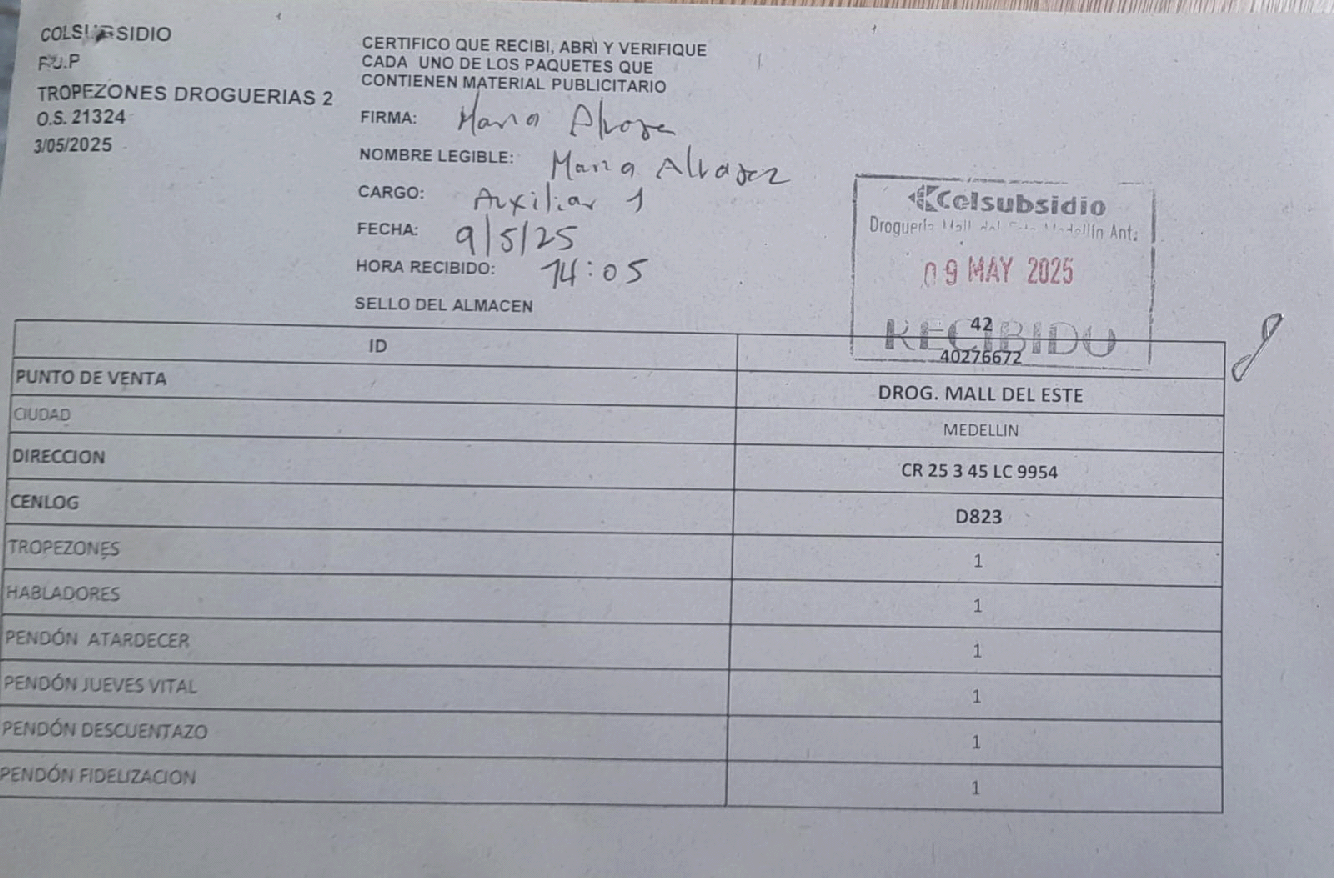 COLSUBSIDIO
P.O.P
TROPEZONES DROGUERIAS 2
O.S. 21324
3/05/2025
CERTIFICO QUE RECIBI, ABRI Y VERIFIQUE
CADA UNO DE LOS PAQUETES QUE
CONTIENEN MATERIAL PUBLICITARIO
FIRMA: Maria Alvarez
NOMBRE LEGIBLE: Maria Alvarez
CARGO: Auxiliar 1
FECHA: 9/5/25
HORA RECIBIDO: 14:05
SELLO DEL ALMACEN
Colsubsidio
Droguería Mall del Este Medellín Ant.
09 MAY 2025
RECIBIDO
42
ID 40276672
PUNTO DE VENTA DROG. MALL DEL ESTE
CIUDAD MEDELLIN
DIRECCION CR 25 3 45 LC 9954
CENLOG D823
TROPEZONES 1
HABLADORES 1
PENDÓN ATARDECER 1
PENDÓN JUEVES VITAL 1
PENDÓN DESCUENTAZO 1
PENDÓN FIDELIZACION 1